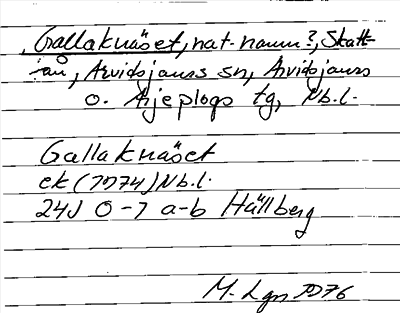 Gallaknäset, nat.namn?, Skatt-
ån, Arvidsjaurs sn, Arvidsjaurs
o. Arjeplogs tg, Nb.l.
Gallaknäset
ek (1974) Nb.l.
24J 0-1 a-b Hällberg
M. Lgn 1976